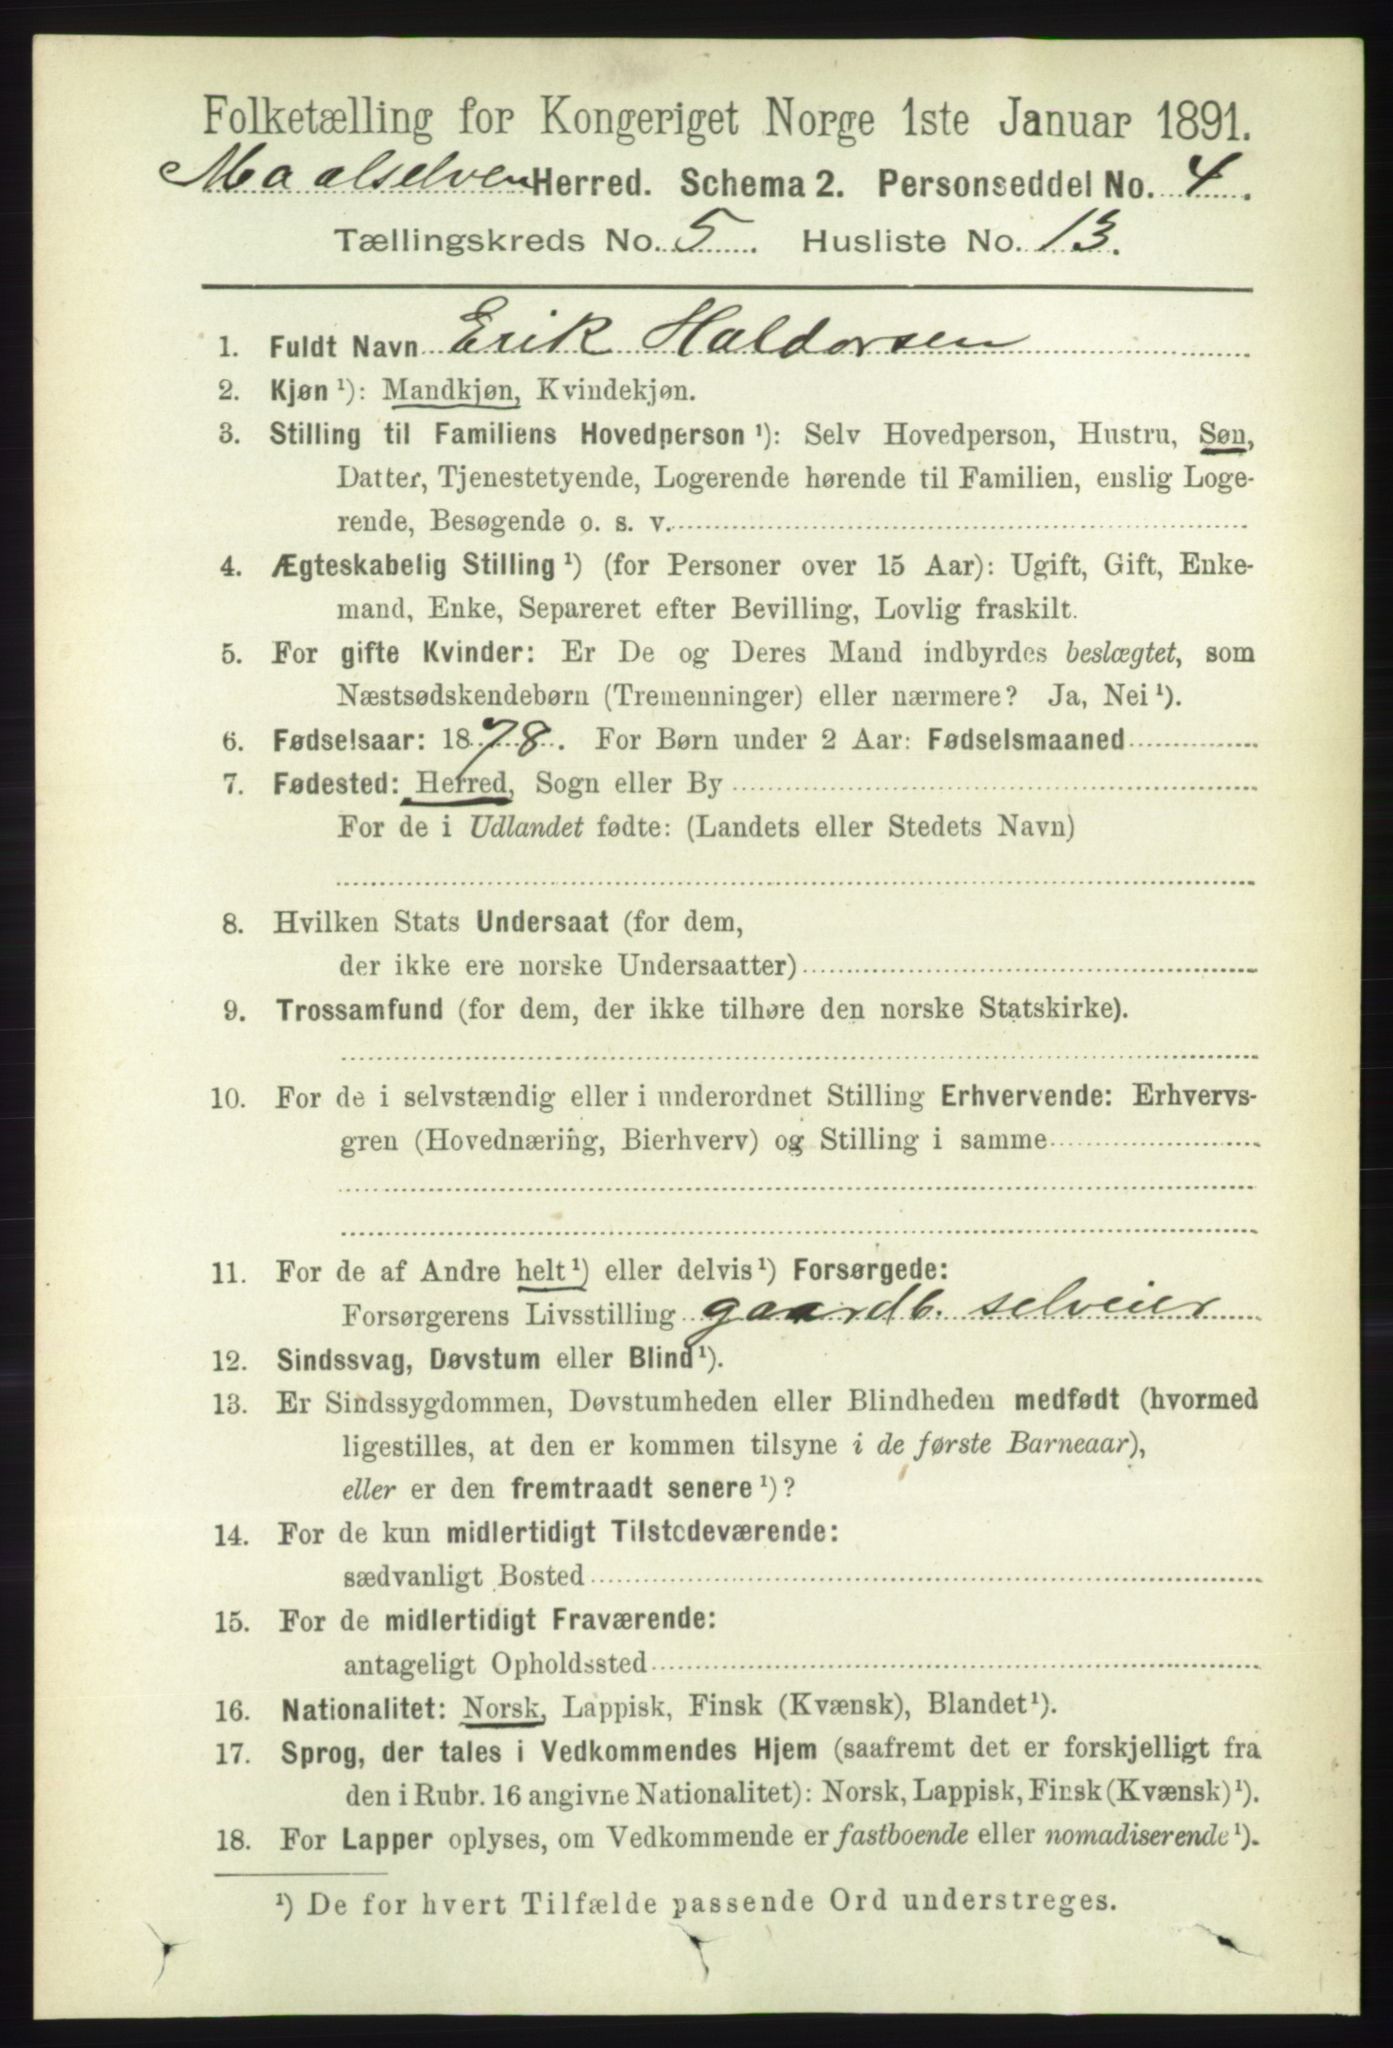 Folketælling for Kongeriget Norge 1ste Januar 1891.
Maalselven Herred. Schema 2. Personseddel No. 4.
Tællingskreds No. 5. Husliste No. 13.
1. Fuldt Navn Erik Haldorsen
2. Kjøn ¹): Mandkjøn, Kvindekjøn.
3. Stilling til Familiens Hovedperson ¹): Selv Hovedperson, Hustru, Søn,
Datter, Tjenestetyende, Logerende hørende til Familien, enslig Loge-
rende, Besøgende o. s. v.
4. Ægteskabelig Stilling ¹) (for Personer over 15 Aar): Ugift, Gift, Enke-
mand, Enke, Separeret efter Bevilling, Lovlig fraskilt.
5. For gifte Kvinder: Er De og Deres Mand indbyrdes beslægtet, som
Næstsødskendebørn (Tremenninger) eller nærmere? Ja, Nei ¹).
6. Fødselsaar: 1878. For Børn under 2 Aar: Fødselsmaaned
7. Fødested: Herred, Sogn eller By
For de i Udlandet fødte: (Landets eller Stedets Navn)
8. Hvilken Stats Undersaat (for dem,
der ikke ere norske Undersaatter)
9. Trossamfund (for dem, der ikke tilhøre den norske Statskirke).
10. For de i selvstændig eller i underordnet Stilling Erhvervende: Erhvervs-
gren (Hovednæring, Bierhverv) og Stilling i samme
11. For de af Andre helt ¹) eller delvis ¹) Forsørgede:
Forsørgerens Livsstilling gaardb. selveier
12. Sindssvag, Døvstum eller Blind ¹).
13. Er Sindssygdommen, Døvstumheden eller Blindheden medfødt (hvormed
ligestilles, at den er kommen tilsyne i de første Barneaar),
eller er den fremtraadt senere ¹)?
14. For de kun midlertidigt Tilstedeværende:
sædvanligt Bosted
15. For de midlertidigt Fraværende:
antageligt Opholdssted
16. Nationalitet: Norsk, Lappisk, Finsk (Kvænsk), Blandet ¹).
17. Sprog, der tales i Vedkommendes Hjem (saafremt det er forskjelligt fra
den i Rubr. 16 angivne Nationalitet): Norsk, Lappisk, Finsk (Kvænsk) ¹).
18. For Lapper oplyses, om Vedkommende er fastboende eller nomadiserende ¹).
¹) De for hvert Tilfælde passende Ord understreges.